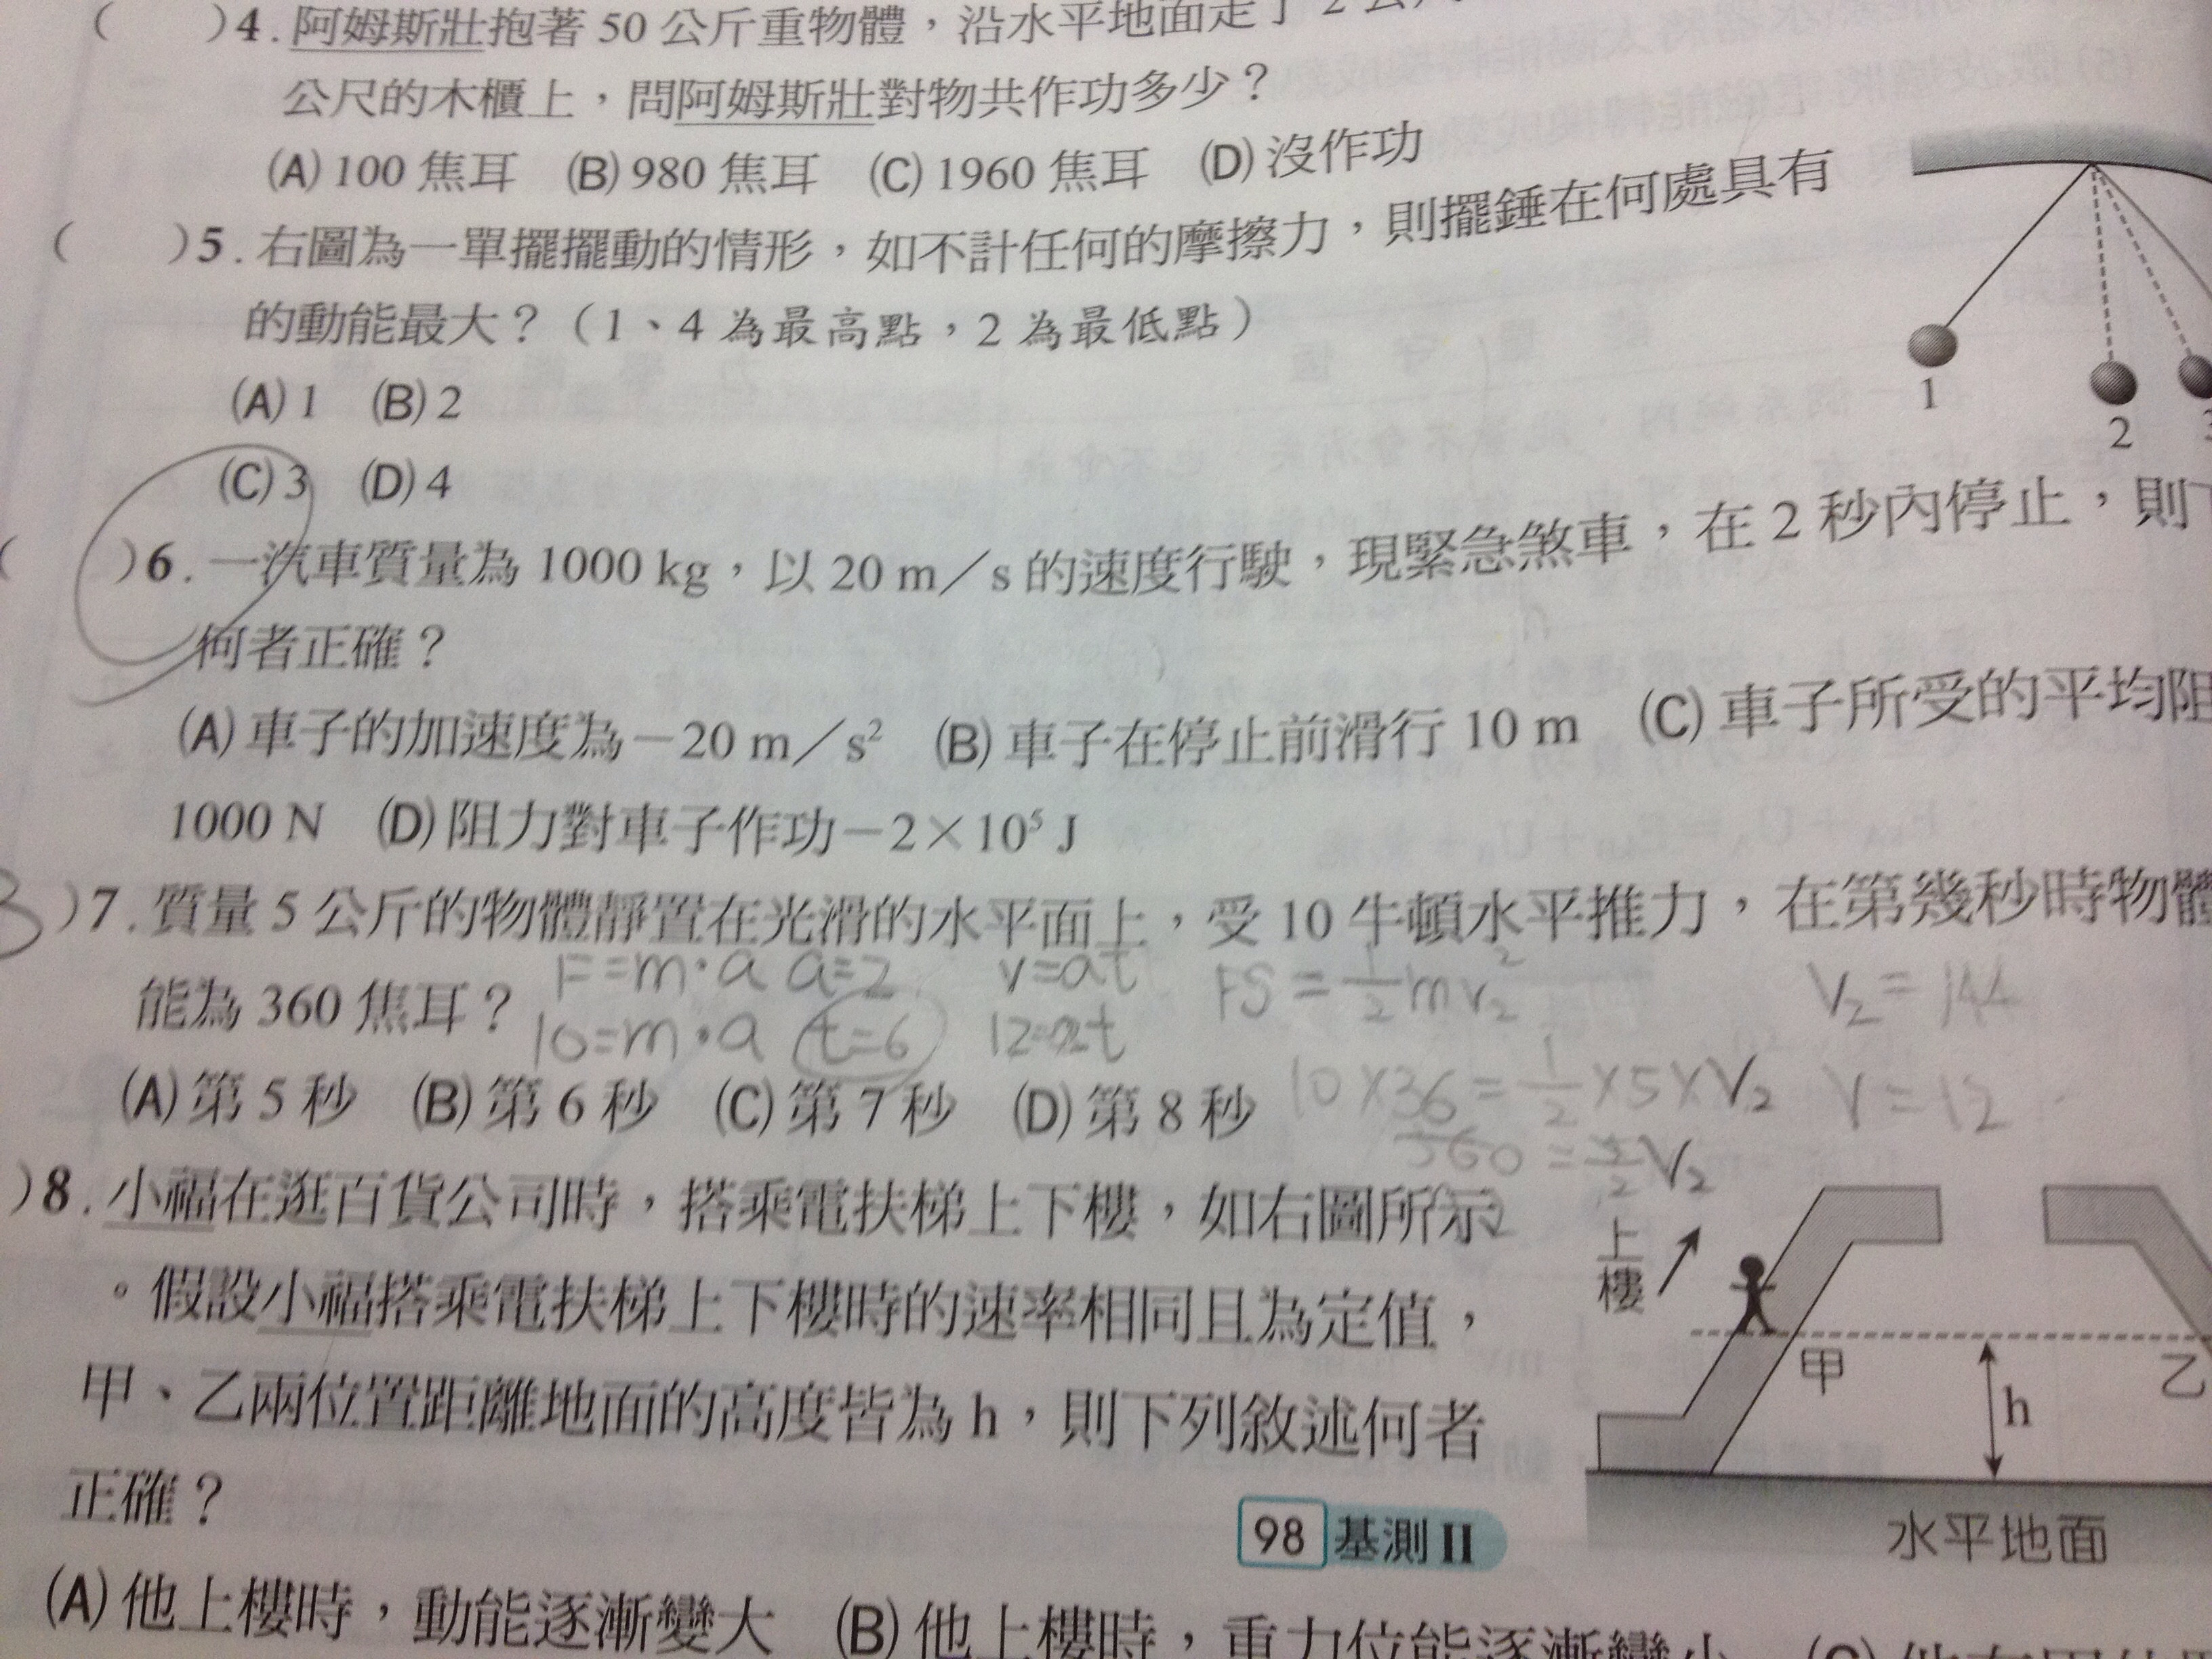 ( )4.阿姆斯壯抱著50公斤重物體,沿水平地面走了2公
公尺的木櫃上,問阿姆斯壯對物共作功多少?
(A)100焦耳 (B)980焦耳 (C)1960焦耳 (D)沒作功
( )5.右圖為一單擺擺動的情形,如不計任何的摩擦力,則擺錘在何處具有
的動能最大?(1、4為最高點,2為最低點)
(A)1 (B)2
(C)3 (D)4
1
2
3
( )6.一汽車質量為1000 kg,以20 m/s的速度行駛,現緊急煞車,在2秒內停止,則
何者正確?
(A)車子的加速度為-20 m/s² (B)車子在停止前滑行10 m (C)車子所受的平均阻
1000 N (D)阻力對車子作功-2×10⁵ J
B )7.質量5公斤的物體靜置在光滑的水平面上,受10牛頓水平推力,在第幾秒時物體
F=m·a a=2 v=at FS=1/2mv₂² V₂=144
能為360焦耳?
10=m·a t=6 12=2t
10×36=1/2×5×V₂ V=12
(A)第5秒 (B)第6秒 (C)第7秒 (D)第8秒
360=5/2V₂
)8.小福在逛百貨公司時,搭乘電扶梯上下樓,如右圖所示
。假設小福搭乘電扶梯上下樓時的速率相同且為定值,
甲、乙兩位置距離地面的高度皆為h,則下列敘述何者
正確?
98 基測II
上樓
甲
乙
h
水平地面
(A)他上樓時,動能逐漸變大 (B)他上樓時,重力位能逐漸變小